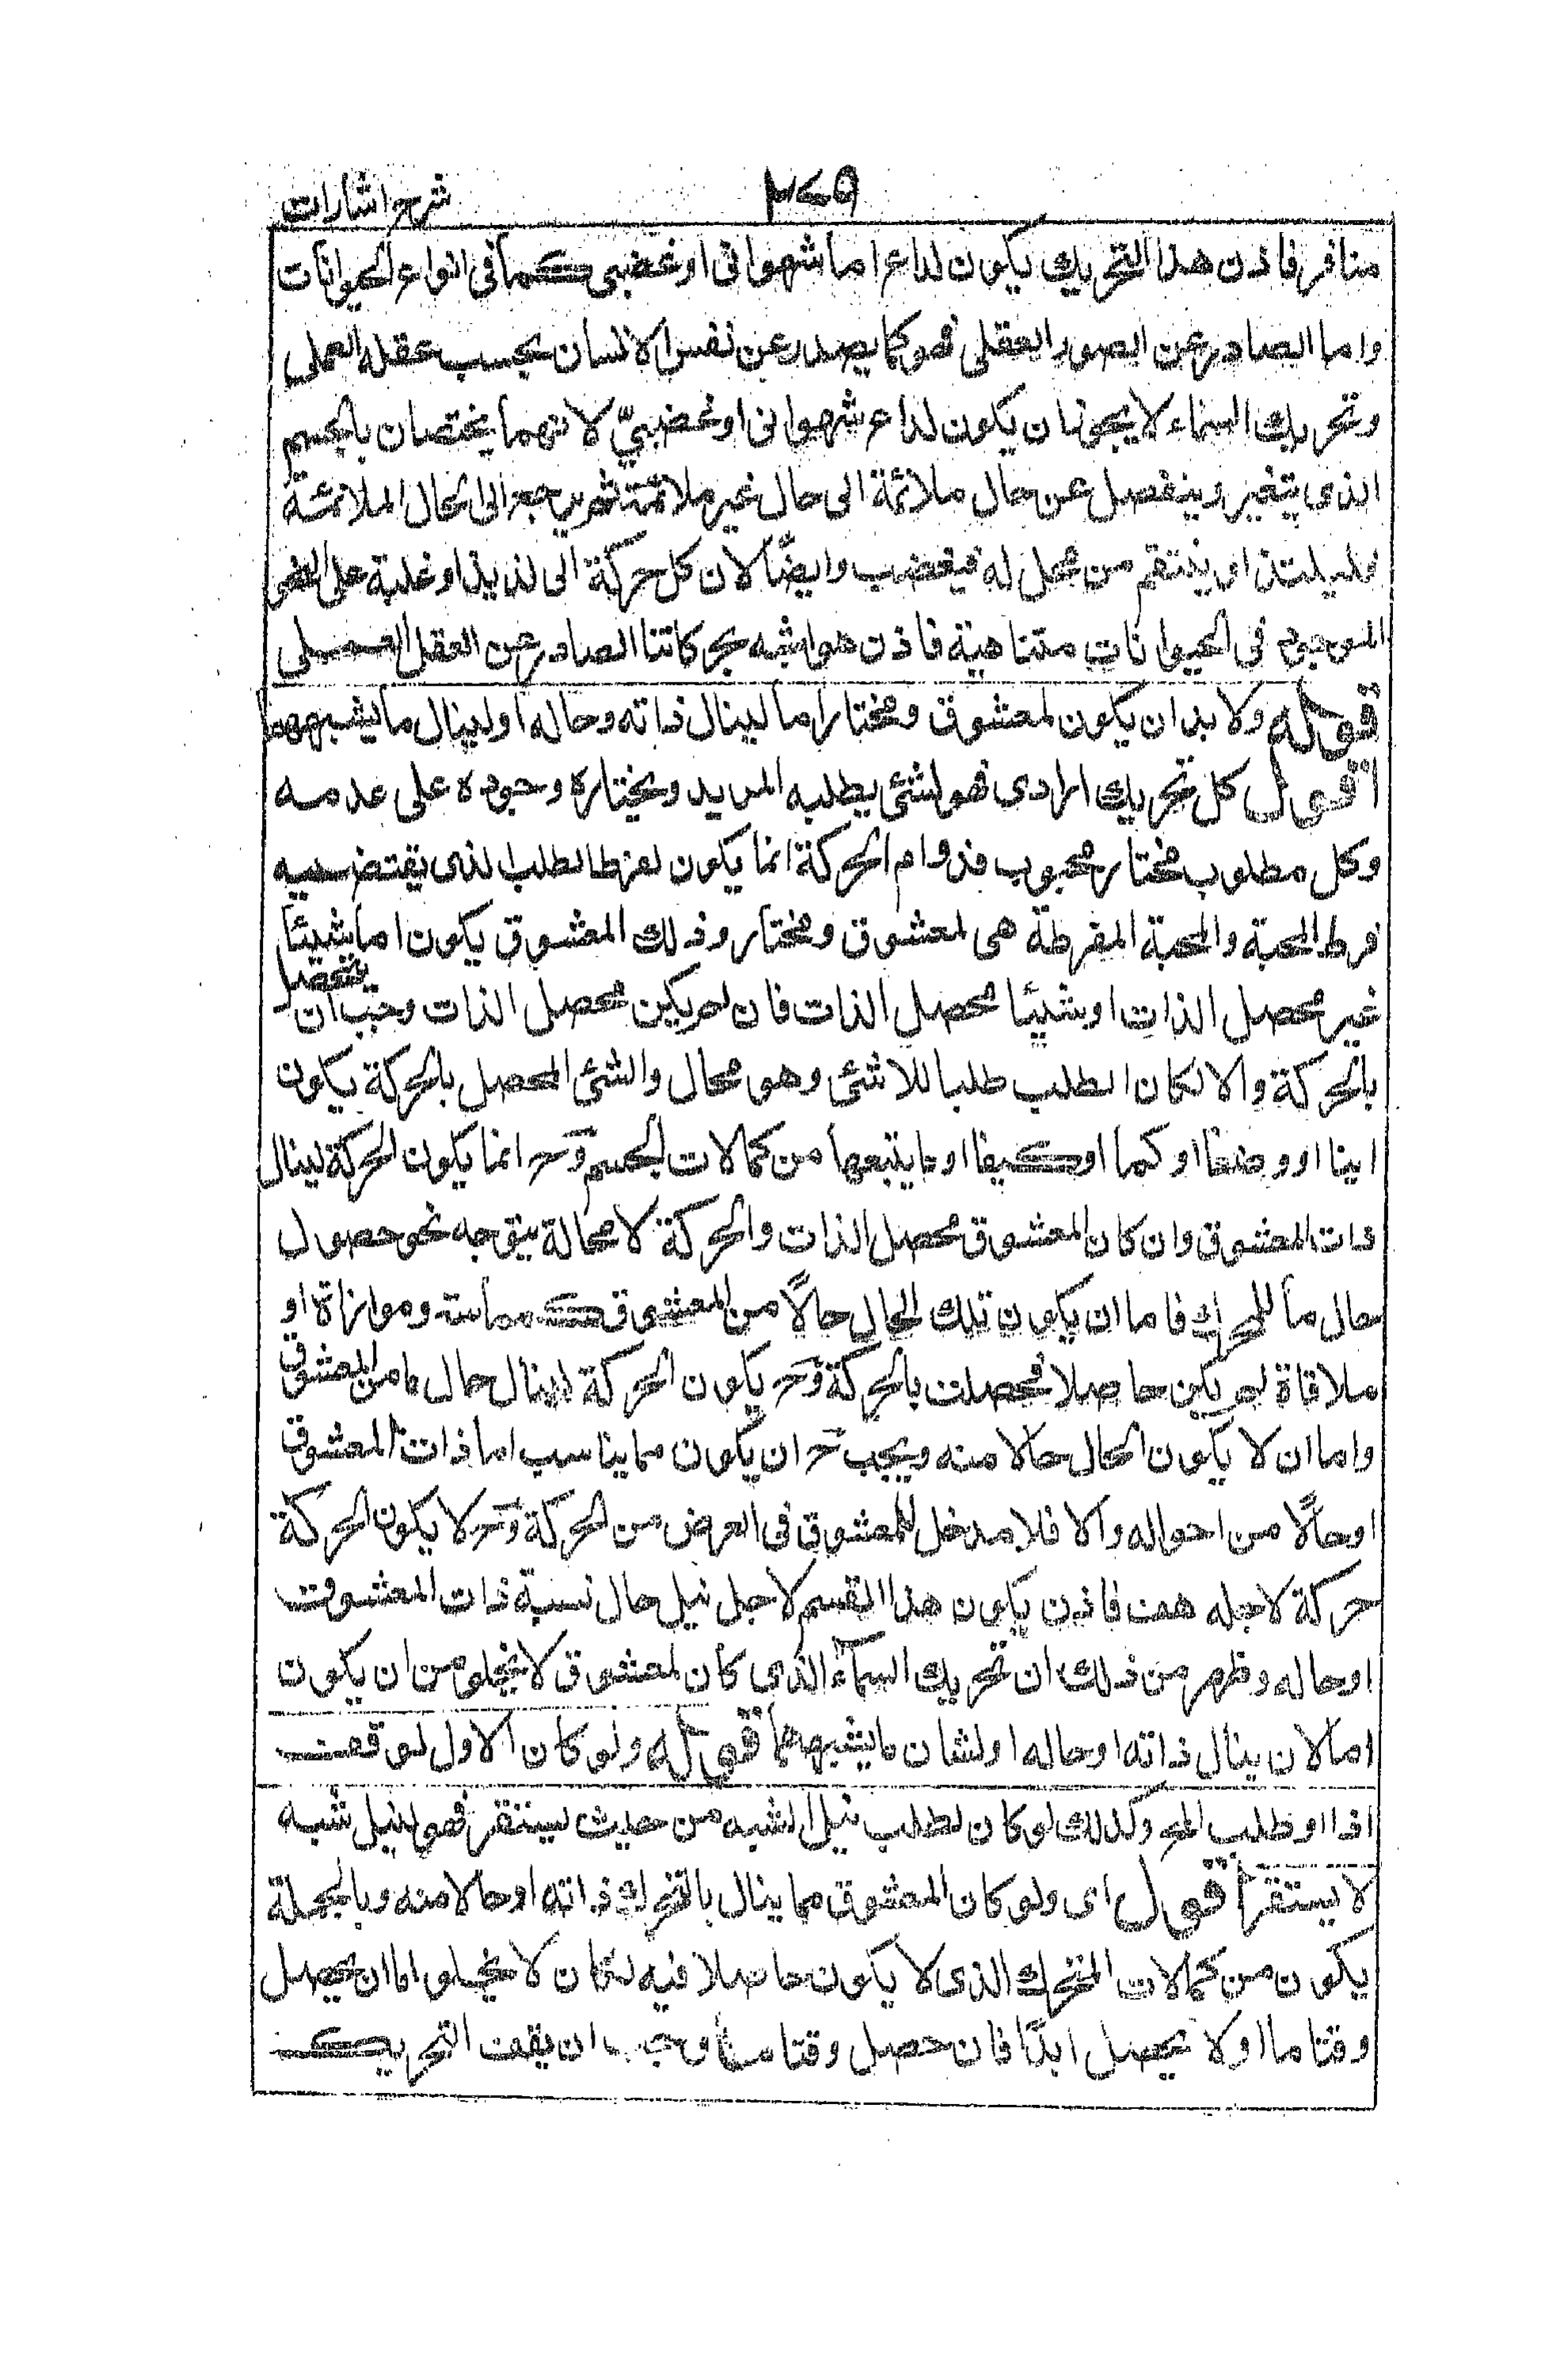 شرح اشارات
منافر فاذن هذا التحريك يكون لداع اما شهوانى او غضبى كما فى انواع الحيوانات
واما الصادر عن التصور العقلى فهو كما يصدر عن نفس الانسان بحسب عقله العملى
وتحريك السماء لا يجوز ان يكون لداع شهوانى او غضبىّ لانهما يختصان بالجسم
الذى يتغير وينفصل عن حال ملائمة الى حال غير ملائمة ثم يرجع الى الحال الملائمة
فليلتذ او ينتقم من مخيل له فيغضب وايضًا لان كل حركة الى لذيذ او غلبة على
الموجود فى الحيوانات متناهية فاذن هو اشبه بحركاتنا الصادر عن العقل العملى
قوله ولا بد ان يكون لمعشوق ومختار اما لينال ذاته وحاله او لينال ما يشبههما
اقول كل تحريك ارادى فهو لشئ يطلبه المريد ويختاره وجوده على عدمه
وكل مطلوب مختار محبوب فدوام الحركة انما يكون لفرط الطلب الذى يقتضيه
فرط المحبة والمحبة المفرطة هى لمعشوق ومختار وذلك المعشوق يكون اما شيئًا
غير محصل الذات او شيئا محصل الذات فان لم يكن محصل الذات وجب ان يتحصل
بالحركة والا لكان الطلب طلبا للاشئ وهو محال والشئ المحصل بالحركة يكون
اينا او وضعا او كما او كيفا او ما يتبعها من كمالات الجسم وح انما يكون الحركة لينال
ذات المعشوق وان كان المعشوق محصل الذات والحركة لا محالة يتوجه نحو حصول
حال ما للمحرك فاما ان يكون تلك الحال حالًا من المعشوق كمماسة وموازاة او
ملاقاة لم يكن حاصلا فحصلت بالحركة وح يكون الحركة لينال حال ما من المعشوق
واما ان لا يكون الحال حالا منه ويجب ح ان يكون مما يناسب اما ذات المعشوق
او حالًا من احواله والا فلا مدخل للمعشوق فى الغرض من الحركة وح لا يكون الحركة
حركة لاجله هف فاذن يكون هذا القسم لاجل نيل حال نسبة ذات المعشوق
او حاله وظهر من ذلك ان تحريك السماء الذى كان لمعشوق لا يخلو من ان يكون
اما لان ينال ذاته او حاله او لشان ما يشبههما قوله ولو كان الاول لوقفت
اذا او طلب المح وكذلك لو كان لطلب نيل الشبه من حيث يستقر فهو لنيل شبه
لا يستقر اقول اى ولو كان المعشوق مما ينال بالتحرك ذاته او حالا منه وبالجملة
يكون من كمالات المتحرك الذى لا يكون حاصلا فيه لكان لا يخلو اما ان يحصل
وقتا ما او لا يحصل ابدًا فان حصل وقتا ما وجب ان يقف التحريك